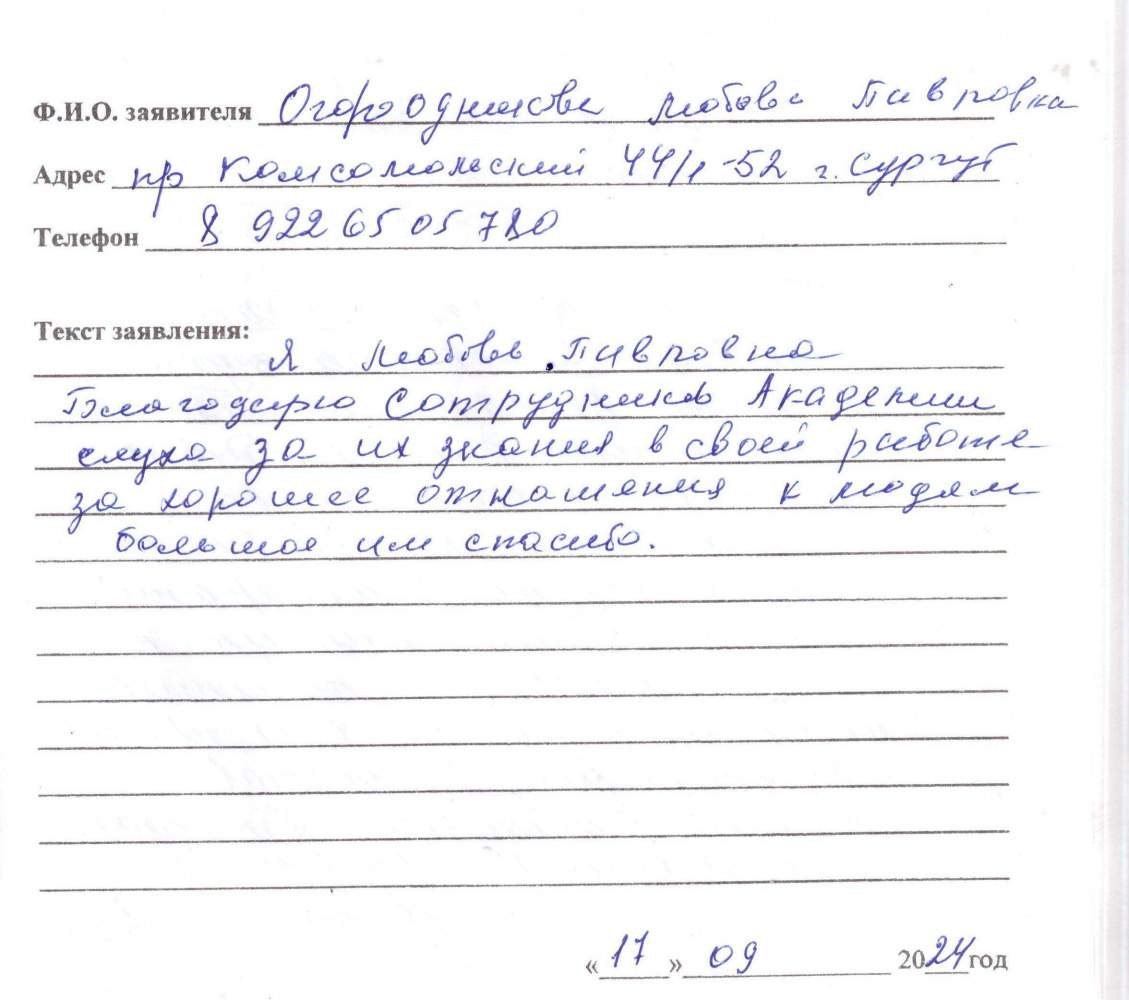 Ф.И.О. заявителя Огородникова Любовь Павловна
Адрес пр Комсомольский 44/1-52 г. Сургут
Телефон 8 922 65 05 780
Текст заявления:
Я Любовь Павловна
Благодарю Сотрудников Академии
слуха за их знания в своей работе
за хорошее отнашения к людям
большое им спасибо.
«17» 09 2024 год